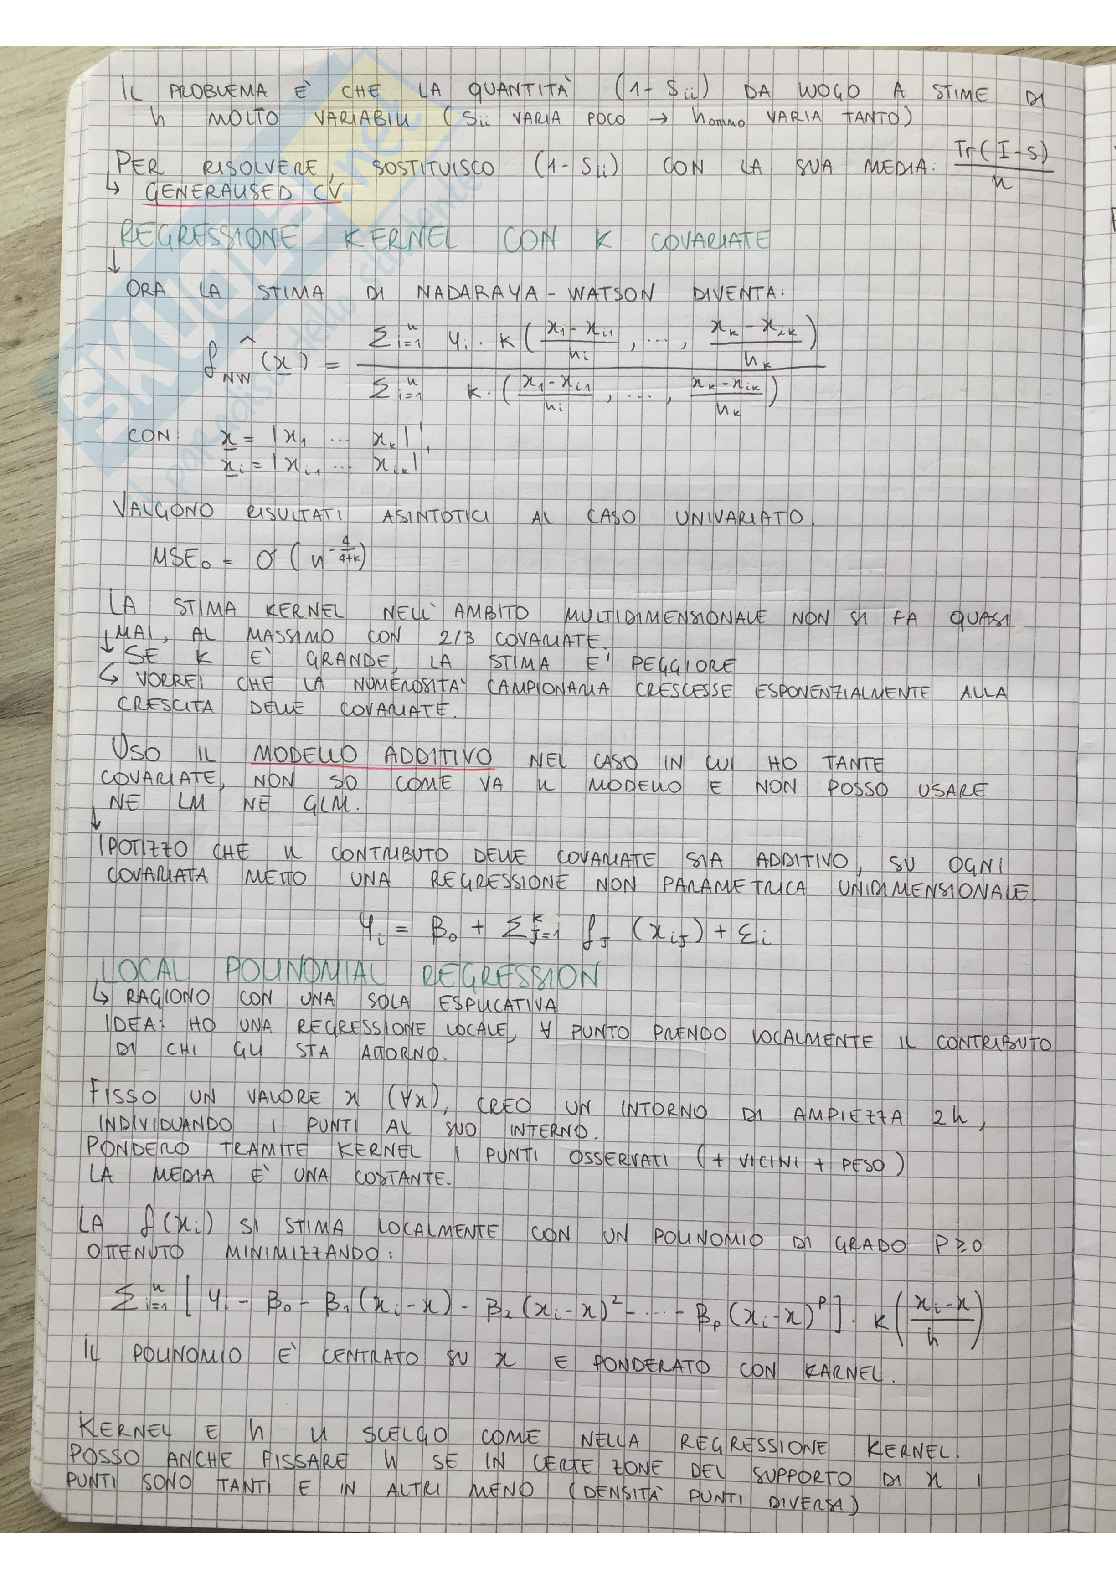 IL PROBLEMA E' CHE LA QUANTITA' (1- Sii) DA LUOGO A STIME DI
h MOLTO VARIABILI (Sii VARIA POCO → hottimo VARIA TANTO)
PER RISOLVERE, SOSTITUISCO (1- Sii) CON LA SUA MEDIA: Tr(I-S)/n
↳ GENERALISED CV
REGRESSIONE KERNEL CON K COVARIATE
↓
ORA LA STIMA DI NADARAYA-WATSON DIVENTA:
f̂NW(x) = Σi=1^n yi · K((x1-xi1)/hi, ..., (xk-xik)/hk) / Σi=1^n K·((x1-xi1)/hi, ..., (xk-xik)/hk)
CON: x = |x1 ... xk|'
xi = |xi1 ... xik|'
VALGONO RISULTATI ASINTOTICI AL CASO UNIVARIATO
MSEo = O(n^-4/(4+k))
LA STIMA KERNEL NELL'AMBITO MULTIDIMENSIONALE NON SI FA QUASI
MAI, AL MASSIMO CON 2/3 COVARIATE.
↳ SE K E' GRANDE, LA STIMA E' PEGGIORE
↳ VORREI CHE LA NUMEROSITA' CAMPIONARIA CRESCESSE ESPONENZIALMENTE ALLA
CRESCITA DELLE COVARIATE.
USO IL MODELLO ADDITIVO NEL CASO IN CUI HO TANTE
COVARIATE, NON SO COME VA IL MODELLO E NON POSSO USARE
NE LM NE GLM.
↓
IPOTIZZO CHE IL CONTRIBUTO DELLE COVARIATE SIA ADDITIVO, SU OGNI
COVARIATA METTO UNA REGRESSIONE NON PARAMETRICA UNIDIMENSIONALE.
Yi = β0 + Σj=1^K fj (xij) + εi
LOCAL POLINOMIAL REGRESSION
↳ RAGIONO CON UNA SOLA ESPLICATIVA
IDEA: HO UNA REGRESSIONE LOCALE, ∀ PUNTO PRENDO LOCALMENTE IL CONTRIBUTO
DI CHI GLI STA ATTORNO.
FISSO UN VALORE x (∀x), CREO UN INTORNO DI AMPIEZZA 2h,
INDIVIDUANDO I PUNTI AL SUO INTERNO.
PONDERO TRAMITE KERNEL I PUNTI OSSERVATI (+ VICINI + PESO)
LA MEDIA E' UNA COSTANTE.
LA f(xi) SI STIMA LOCALMENTE CON UN POLINOMIO DI GRADO P≥0
OTTENUTO MINIMIZZANDO:
Σi=1^n [Yi - β0 - β1(xi-x) - β2(xi-x)^2 - ... - βp(xi-x)^p] · K((xi-x)/h)
IL POLINOMIO E' CENTRATO SU x E PONDERATO CON KARNEL.
KERNEL E h LI SCELGO COME NELLA REGRESSIONE KERNEL.
POSSO ANCHE FISSARE h SE IN CERTE ZONE DEL SUPPORTO DI x I
PUNTI SONO TANTI E IN ALTRI MENO (DENSITA' PUNTI DIVERSA)